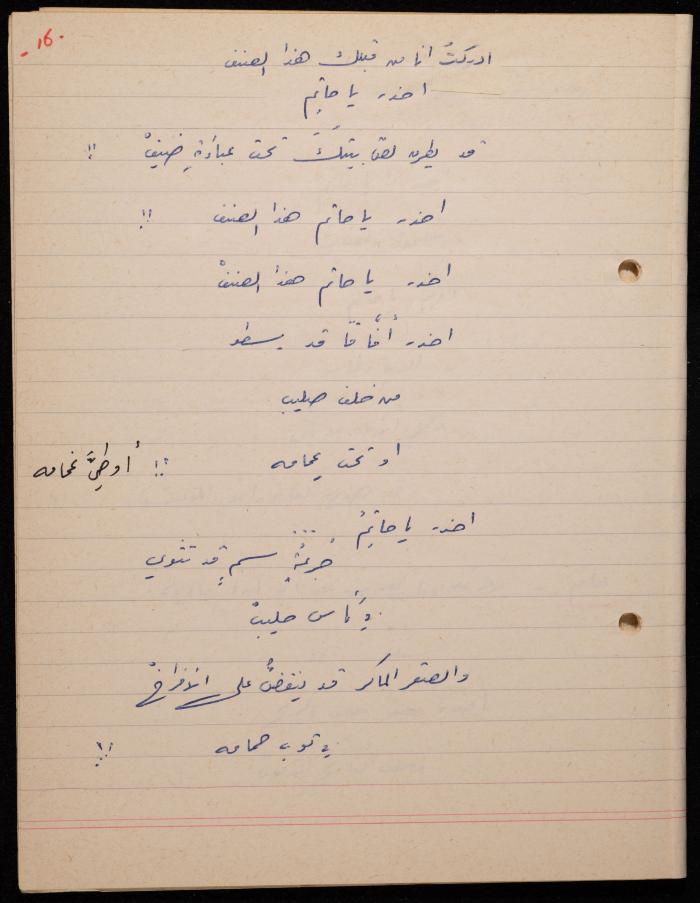 -16-
ادركتُ انا من قبلك هذا الصنف
احذر يا حاتِم
قد يطرق لصٌ بيتكَ تحت عباءَةِ ضيفْ !!
احذر يا حاتم هذا الصنف !!
احذر يا حاتم هذا الصنفْ
احذر أفّاقًا قد يسطو
من خلف صليب
او تحت عمامه !! أو طيَّ غمامه
احذر يا حاتِمُ ...
جُرعَةُ سمٍ قد تثوي
في كأس حليبْ
والصقر الماكر قد ينقضُّ على الافراخْ
في ثوب حمامه !!